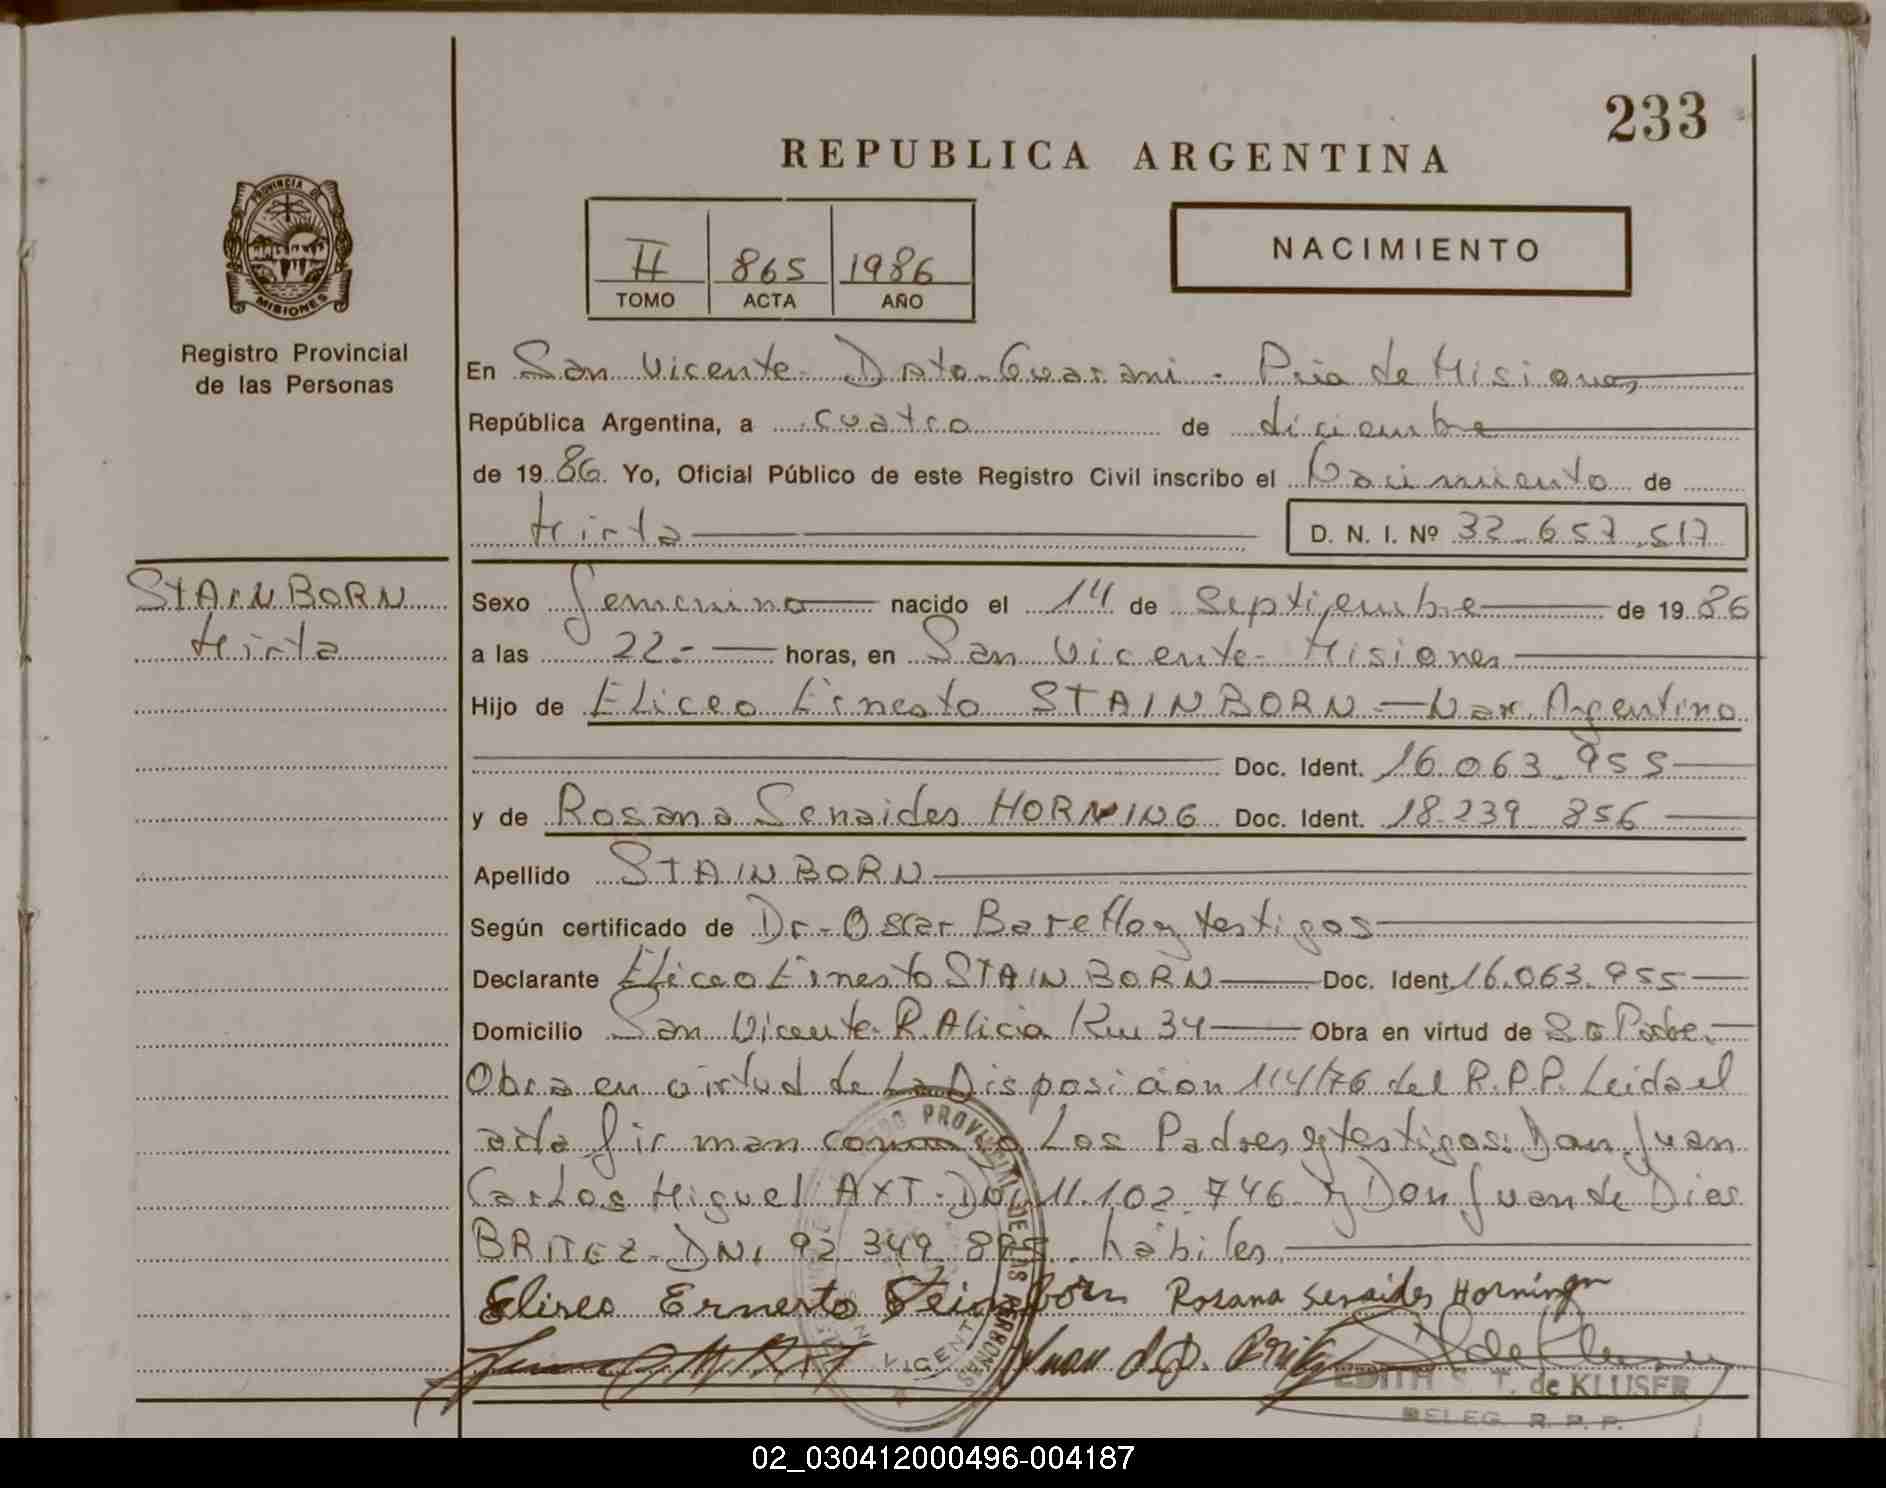 233
REPUBLICA ARGENTINA
PROVINCIA D
MISIONES
Registro Provincial
de las Personas
II 865 1986
TOMO ACTA AÑO
NACIMIENTO
En San Vicente - Dpto. Guarani - Pcia de Misiones
República Argentina, a cuatro de diciembre
de 19 86. Yo, Oficial Público de este Registro Civil inscribo el Nacimiento de
Mirta D. N. I. Nº 32.657.517
STAINBORN
Mirta
Sexo femenino nacido el 14 de Septiembre de 19 86
a las 22.- horas, en San Vicente - Misiones
Hijo de Eliceo Ernesto STAINBORN - Nac. Argentino
Doc. Ident. 16.063.955
y de Rosana Senaides HORNING Doc. Ident. 18.239.856
Apellido STAINBORN
Según certificado de Dr. Oscar y testigos
Declarante Eliceo Ernesto STAINBORN Doc. Ident. 16.063.955
Domicilio San Vicente - P. Alicia Km 34 Obra en virtud de Padre.
Obra en virtud de La Disposicion 114/76 del R.P.P. Leida el
acta firman Los Padres y testigos: Don Juan
Carlos Miguel AXT - DNI 11.102.746 y Don Juan de Dios
BRITEZ - DNI 92.349 habiles
Eliseo Ernesto Steinborn Rosana Senaides Horning
Juan d. D. Britez
EDITH S. T. de KLUSER
DELEG. R. P. P.
02_030412000496-004187